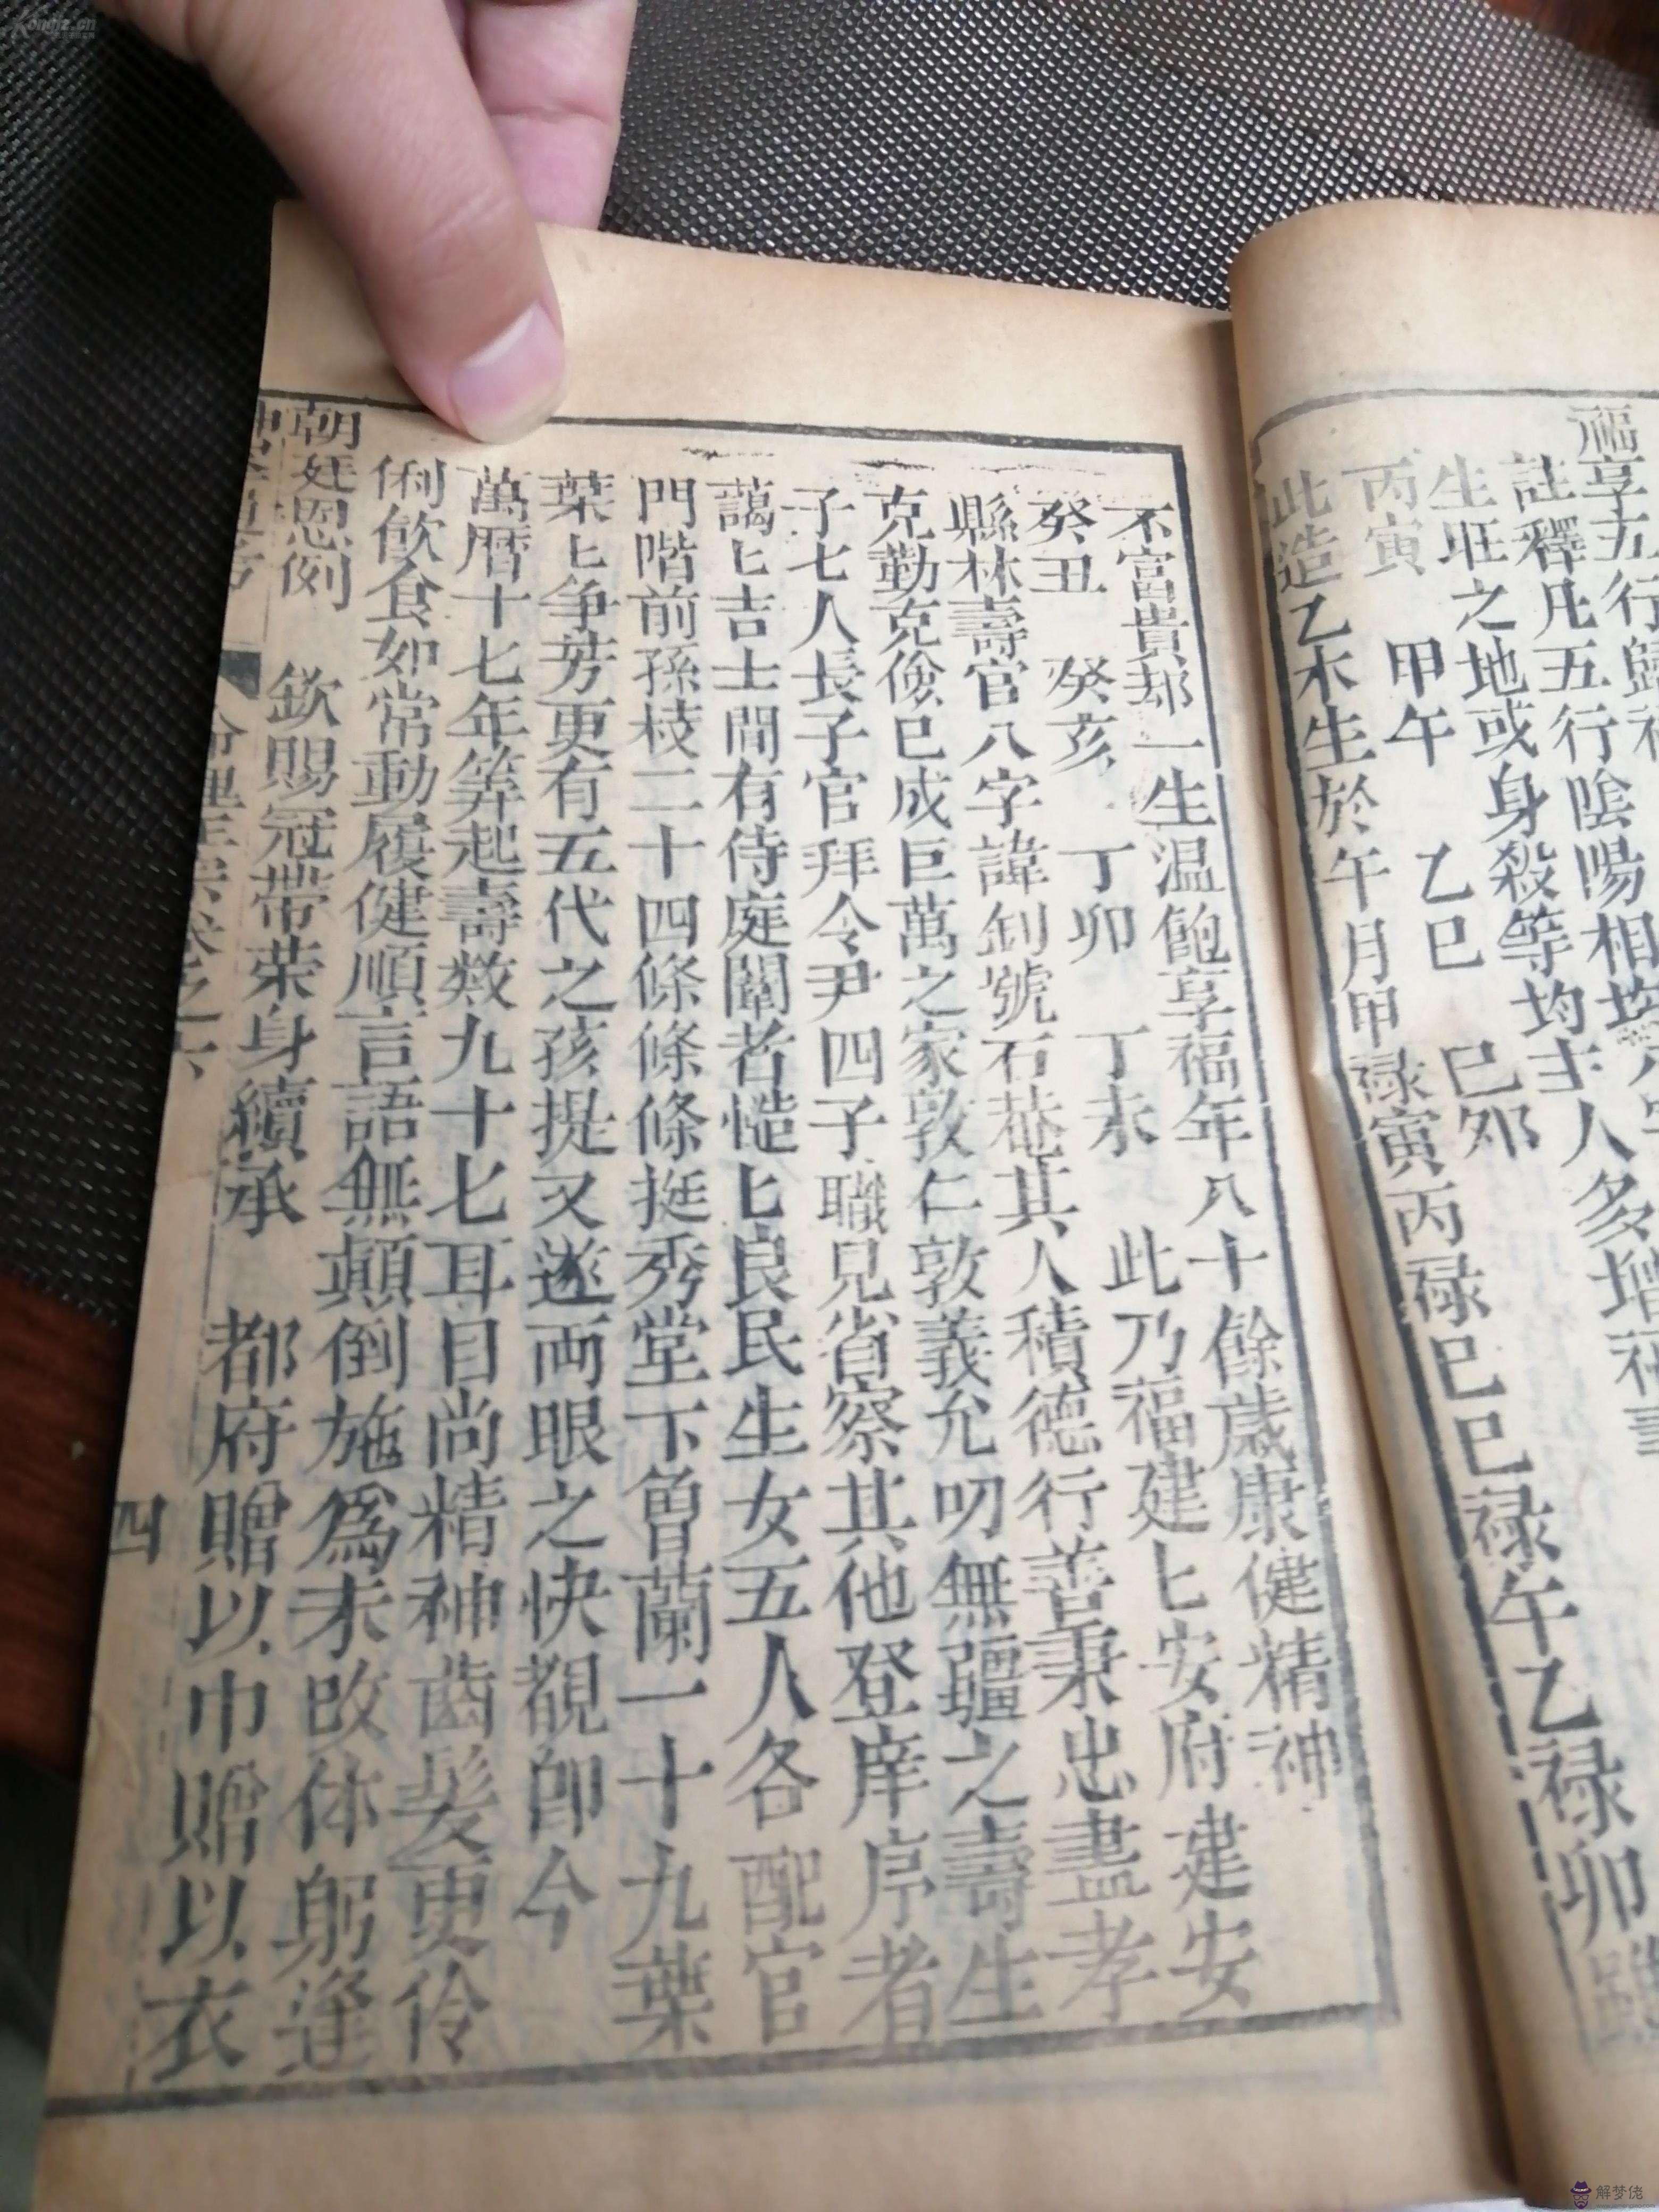 福享五行歸祿
註釋凡五行陰陽相均
生旺之地或身殺等均主人多增福壽
丙寅 甲午 乙巳 己卯
此造乙木生於午月甲祿寅丙祿巳巳祿午乙祿卯雖
不富貴却一生温飽享福年八十餘歲康健精神
癸丑 癸亥 丁卯 丁未 此乃福建匕安府建安
縣林壽官八字諱釗號石菴其人積德行善秉忠盡孝
克勤克儉已成巨萬之家敦仁敦義允叨無疆之壽生
子七人長子官拜令尹四子職兒省察其他登庠序者
藹匕吉士間有侍庭闈者慥匕良民生女五人各配官
門階前孫枝二十四條條條挺秀堂下曾蘭一十九葉
葉匕争芳更有五代之孩提又遂両眼之快覩即今
萬曆十七年筭起壽数九十七耳目尚精神齒髮更伶
俐飲食如常動履健順言語無顛倒施爲未改体躬逢
朝廷恩例 欽賜冠帶荣身續承 都府贈以巾贈以衣
四
解梦佬